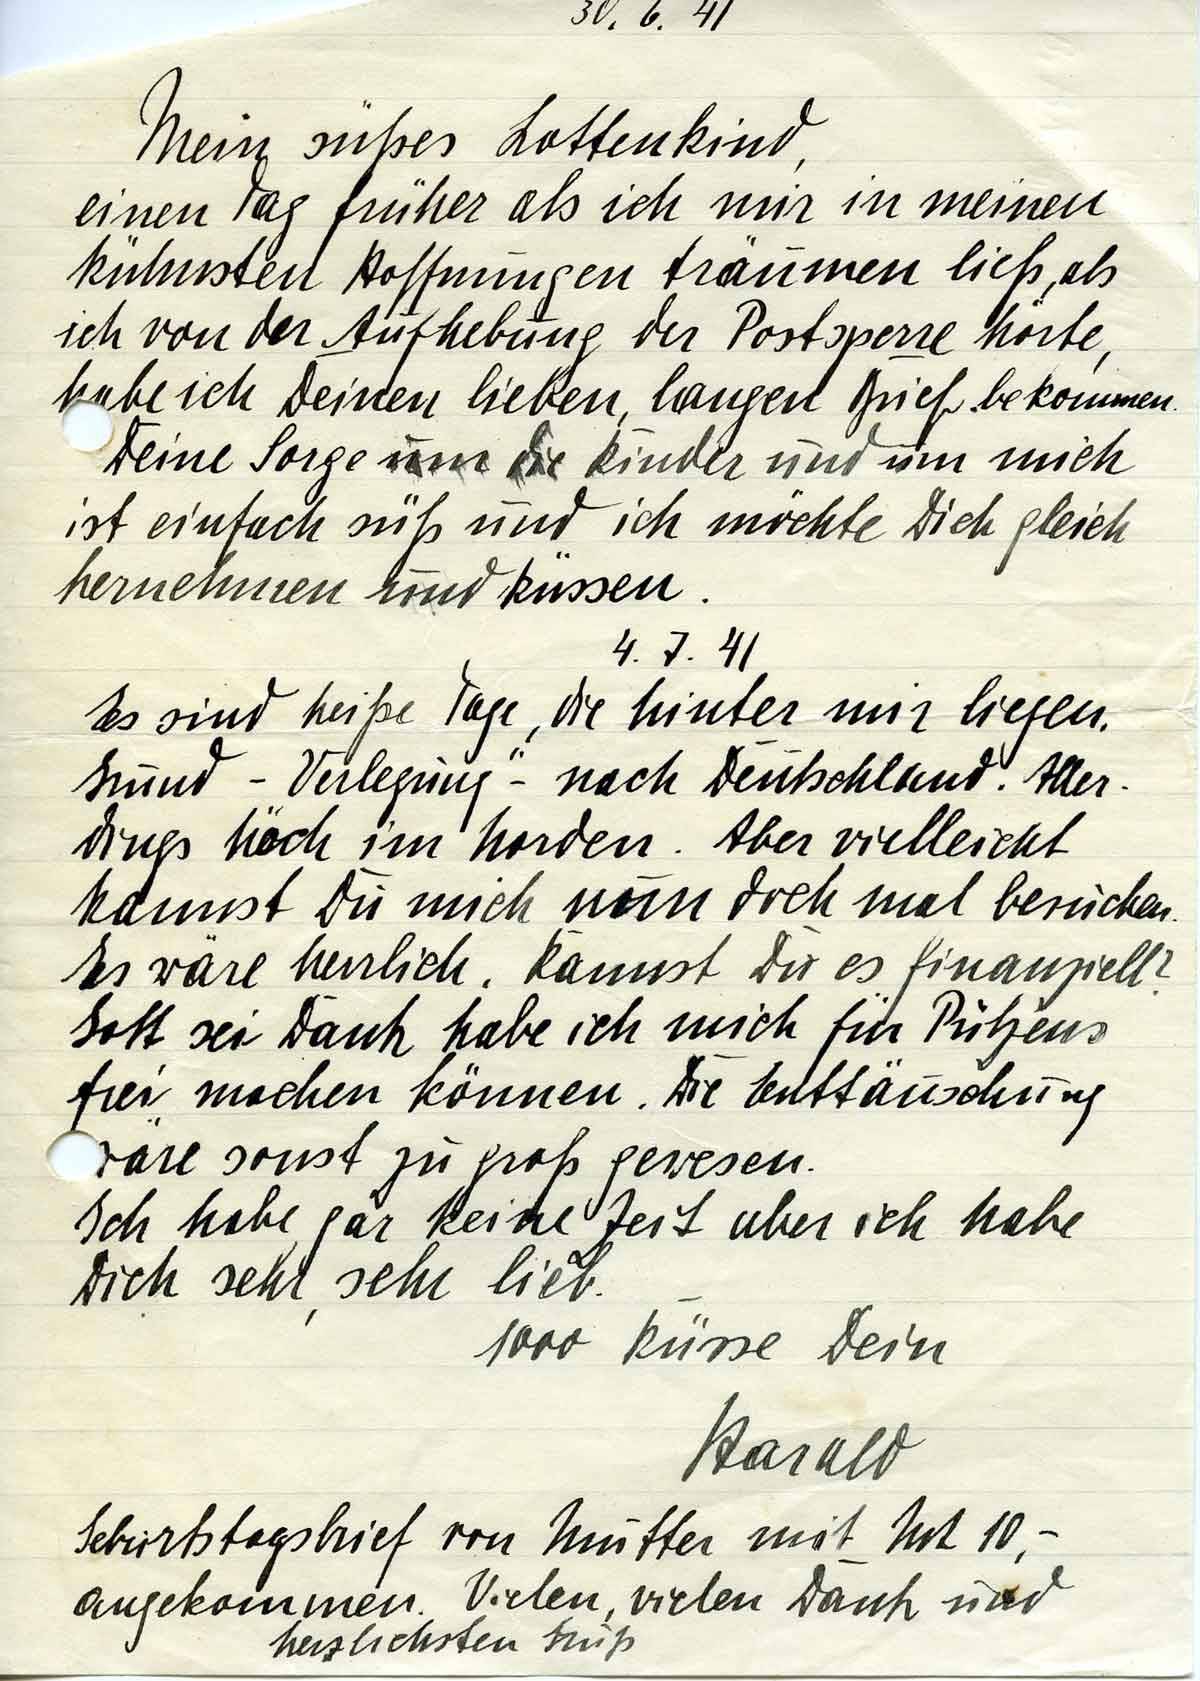 30. 6. 41
Mein süßes Lottenkind,
einen Tag früher als ich mir in meinen
kühnsten Hoffnungen träumen ließ, als
ich von der Aufhebung der Postsperre hörte,
habe ich Deinen lieben, langen Brief bekommen.
Deine Sorge um die Kinder und um mich
ist einfach süß und ich möchte Dich gleich
hernehmen und küssen.
4. 7. 41
Es sind heiße Tage, die hinter mir liegen.
Grund - Verlegung" - nach Deutschland. Aller-
dings hoch im Norden. Aber vielleicht
kannst Du mich nun doch mal besuchen.
Es wäre herrlich. Kannst Du es finanziell?
Gott sei Dank habe ich mich für Pützens
frei machen können. Die Enttäuschung
wäre sonst zu groß gewesen.
Ich habe gar keine Zeit aber ich habe
Dich sehr, sehr lieb.
1000 Küsse Dein
Harald
Geburtstagsbrief von Mutter mit 10,-
angekommen. Vielen, vielen Dank und
herzlichsten Gruß